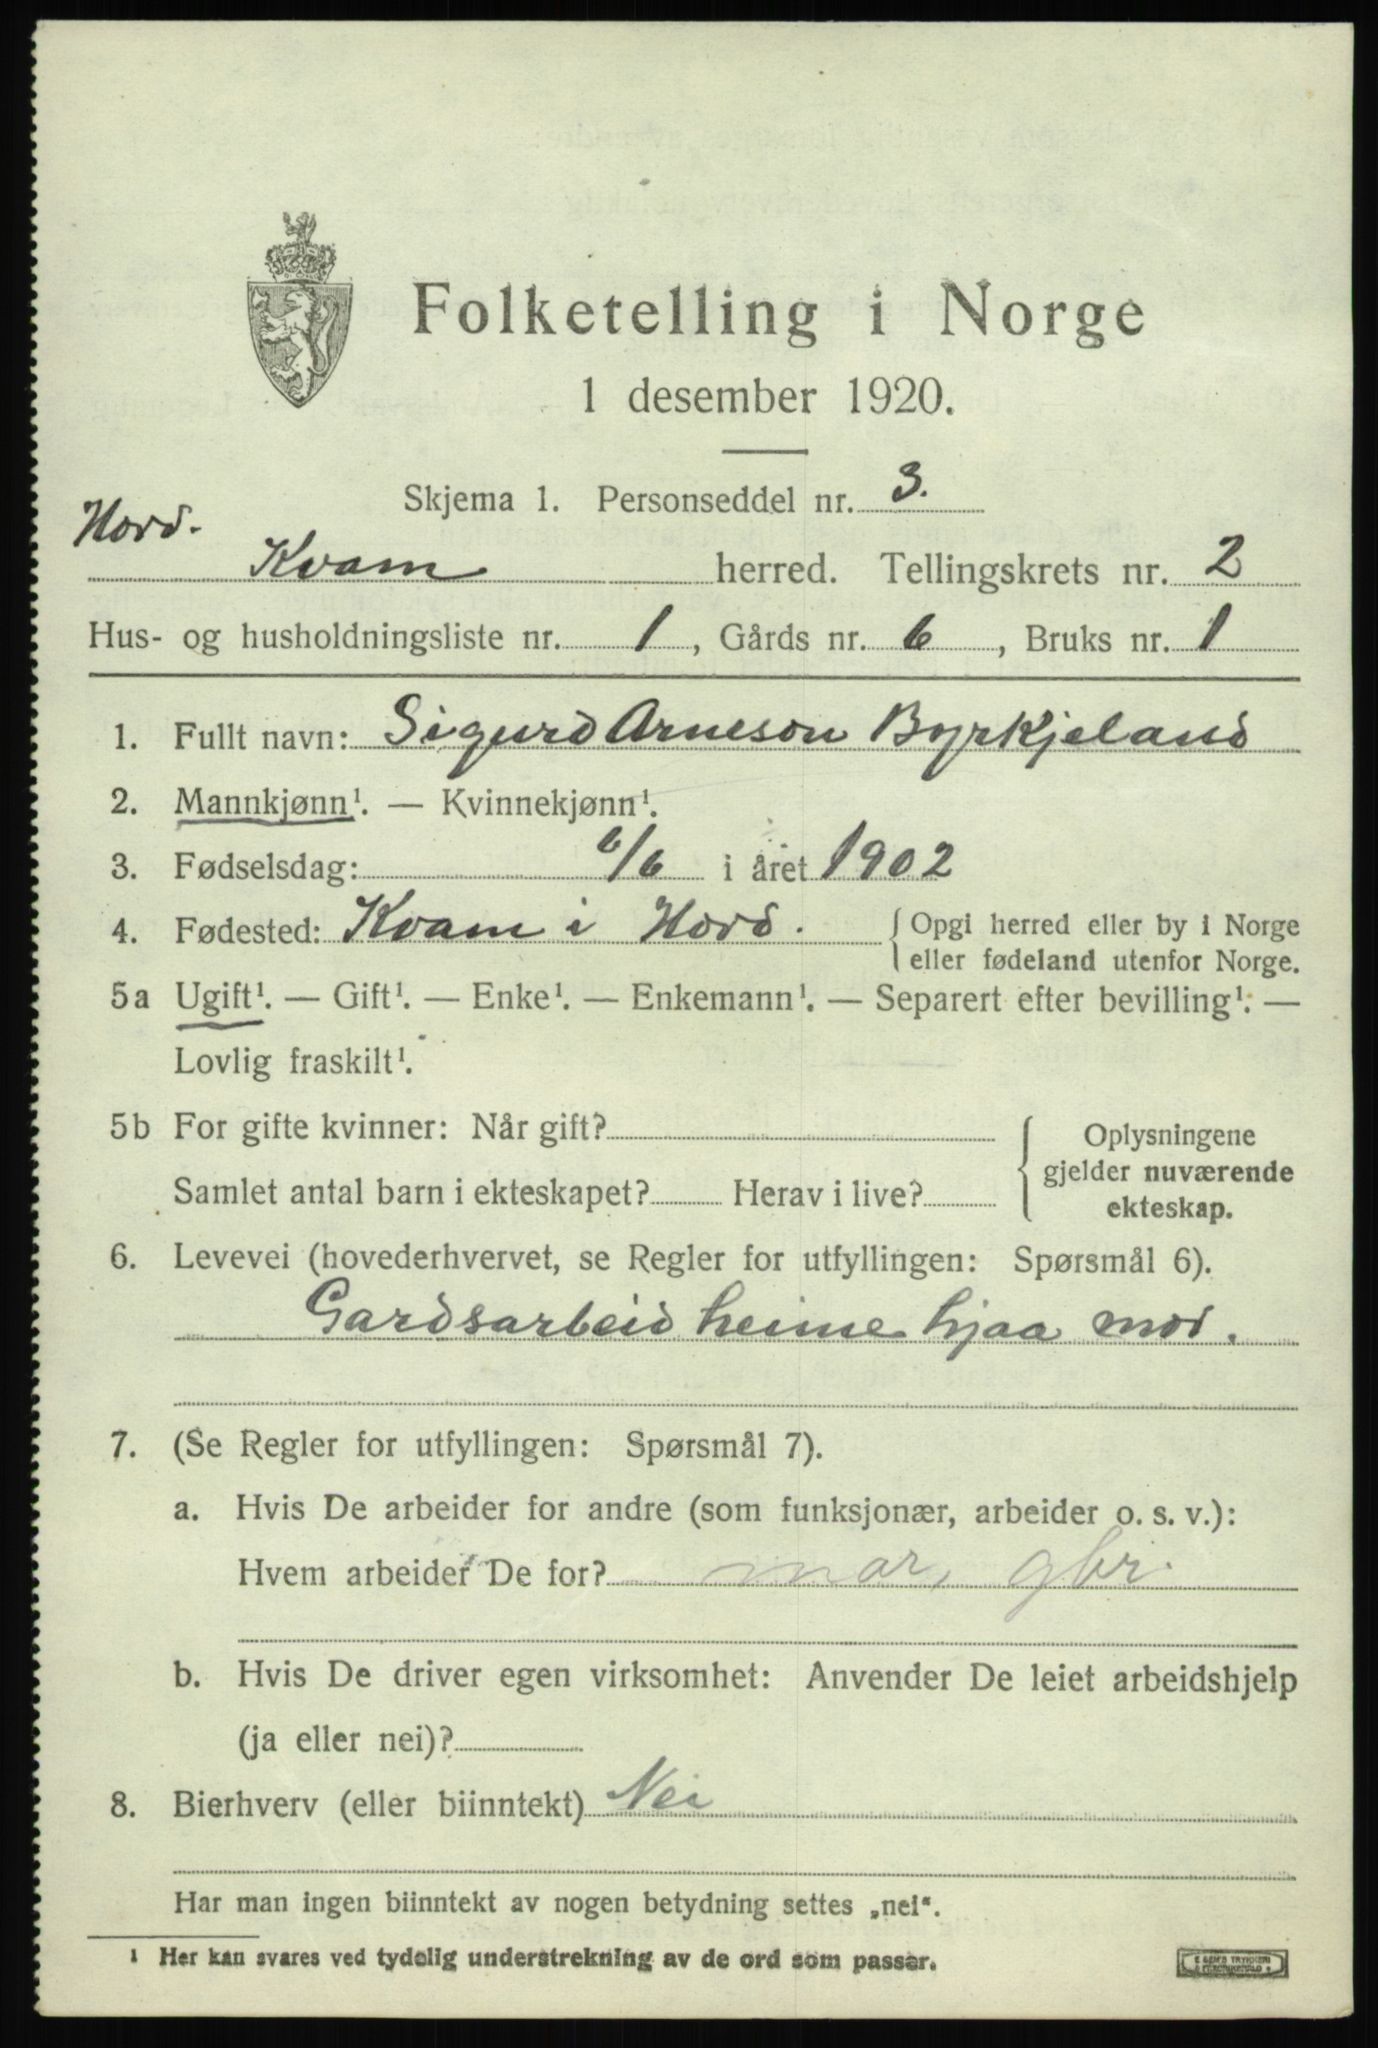 Folketelling i Norge
1 desember 1920.
Skjema 1. Personseddel nr. 3.
Hord.
Kvam herred. Tellingskrets nr. 2
Hus- og husholdningsliste nr. 1, Gårds nr. 6, Bruks nr. 1
1. Fullt navn: Sigurd Arneson Byrkjeland
2. Mannkjønn¹. — Kvinnekjønn¹.
3. Fødselsdag: 6/6 i året 1902
4. Fødested: Kvam i Hord. { Opgi herred eller by i Norge
eller fødeland utenfor Norge.
5a Ugift¹. — Gift¹. — Enke¹. — Enkemann¹. — Separert efter bevilling¹. —
Lovlig fraskilt¹.
5b For gifte kvinner: Når gift?
Samlet antal barn i ekteskapet? Herav i live?
Oplysningene
gjelder nuværende
ekteskap.
6. Levevei (hovederhvervet, se Regler for utfyllingen: Spørsmål 6).
Gardsarbeid heime hjaa mor.
7. (Se Regler for utfyllingen: Spørsmål 7).
a. Hvis De arbeider for andre (som funksjonær, arbeider o. s. v.):
Hvem arbeider De for? mor, gbr.
b. Hvis De driver egen virksomhet: Anvender De leiet arbeidshjelp
(ja eller nei)?
8. Bierhverv (eller biinntekt) Nei
Har man ingen biinntekt av nogen betydning settes „nei“.
¹ Her kan svares ved tydelig understrekning av de ord som passer.